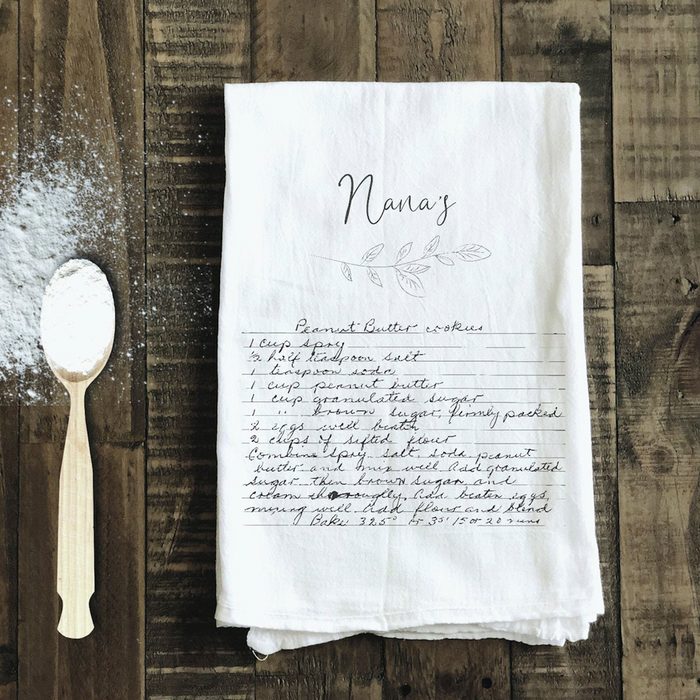 Nana's
Peanut Butter cookies
1 cup spry
1/2 half teaspoon salt
1 teaspoon soda
1 cup peanut butter
1 cup granulated sugar
1 " brown sugar, firmly packed
2 eggs well beaten
2 cups of sifted flour
Combine spry, salt, soda, peanut
butter and mix well. Add granulated
sugar then brown sugar and
cream thoroughly, add beaten eggs,
mixing well. Add flour and blend
Bake 325° 15 or 20 mins